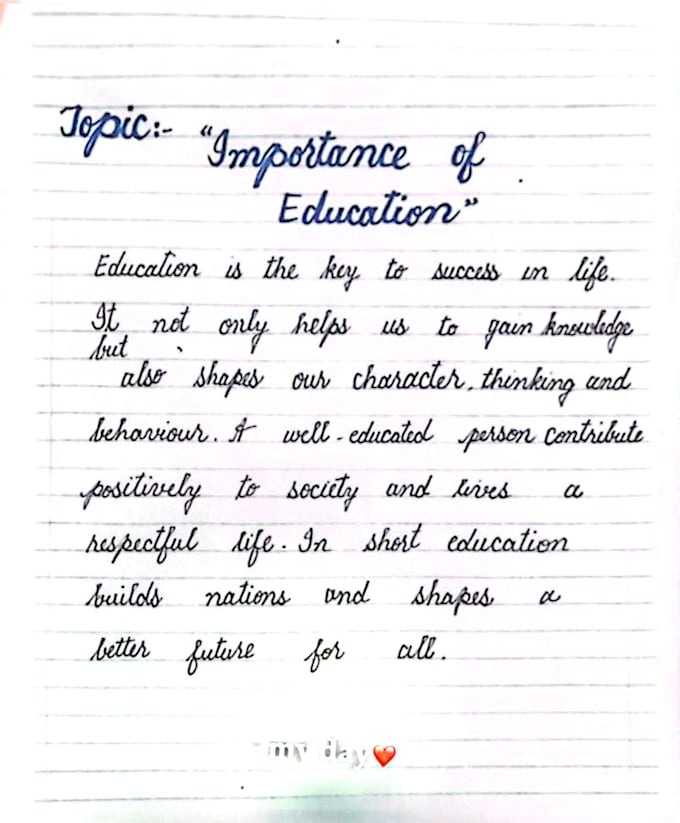 Topic:- "Importance of
Education"
Education is the key to success in life.
It not only helps us to gain knowledge
but
also shapes our character, thinking and
behaviour. A well-educated person contribute
positively to society and lives a
respectful life. In short education
builds nations and shapes a
better future for all.
my day❤️